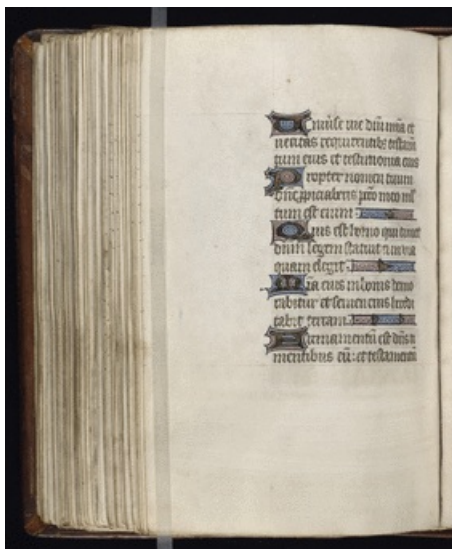 Uniũse uie dñi mĩa et
ueritas requirentibꝫ testam
tum eius et testimonia eius
Propter nomen tuum
dñe ꝓpiciaberis pctõ meo ml
tum est enim
Quis est homo qui timet
dñm legem statuit ei in uia
quam elegit
Aĩa eius in bonis demo
rabitur et semen eius heredi
tabit terram
Firmamentũ est dñs ti
mentibus eũ: et testamentũ